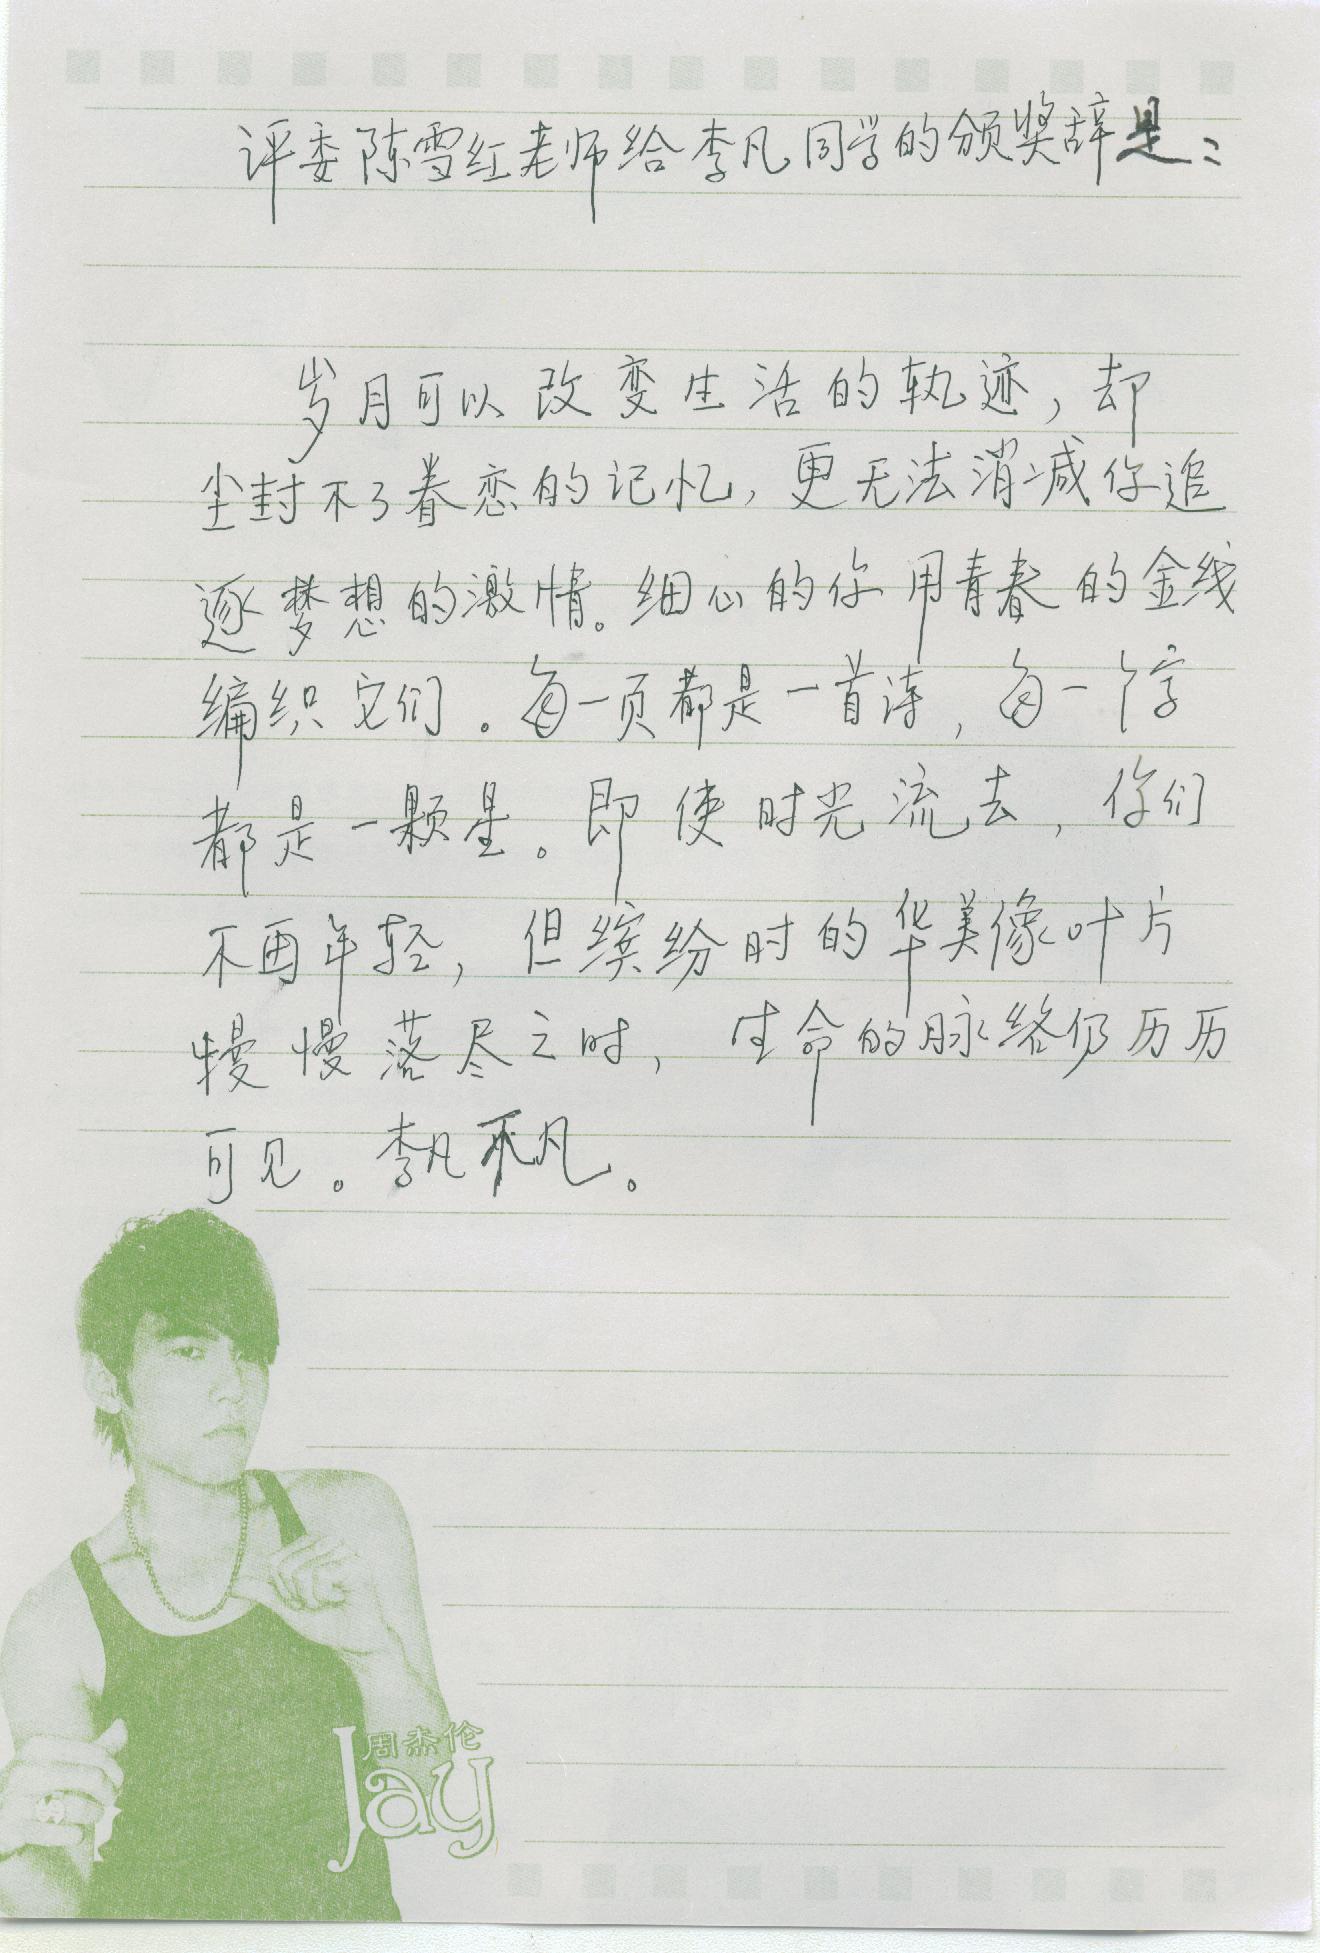 评委陈雪红老师给李凡同学的颁奖辞是：
岁月可以改变生活的轨迹，却
尘封不了眷恋的记忆，更无法消减你追
逐梦想的激情。细心的你用青春的金线
编织它们。每一页都是一首诗，每一个字
都是一颗星。即使时光流去，你们
不再年轻，但缤纷时的华美像叶片
慢慢落尽之时，生命的脉络仍历历
可见。李凡不凡。
周杰伦
Jay